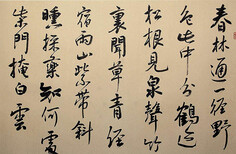 春林通一徑野
色此中分鶴迹
松根見泉聲竹
裏聞草青經
宿雨山紫帶斜
曛採藥知何處
柴門掩白雲